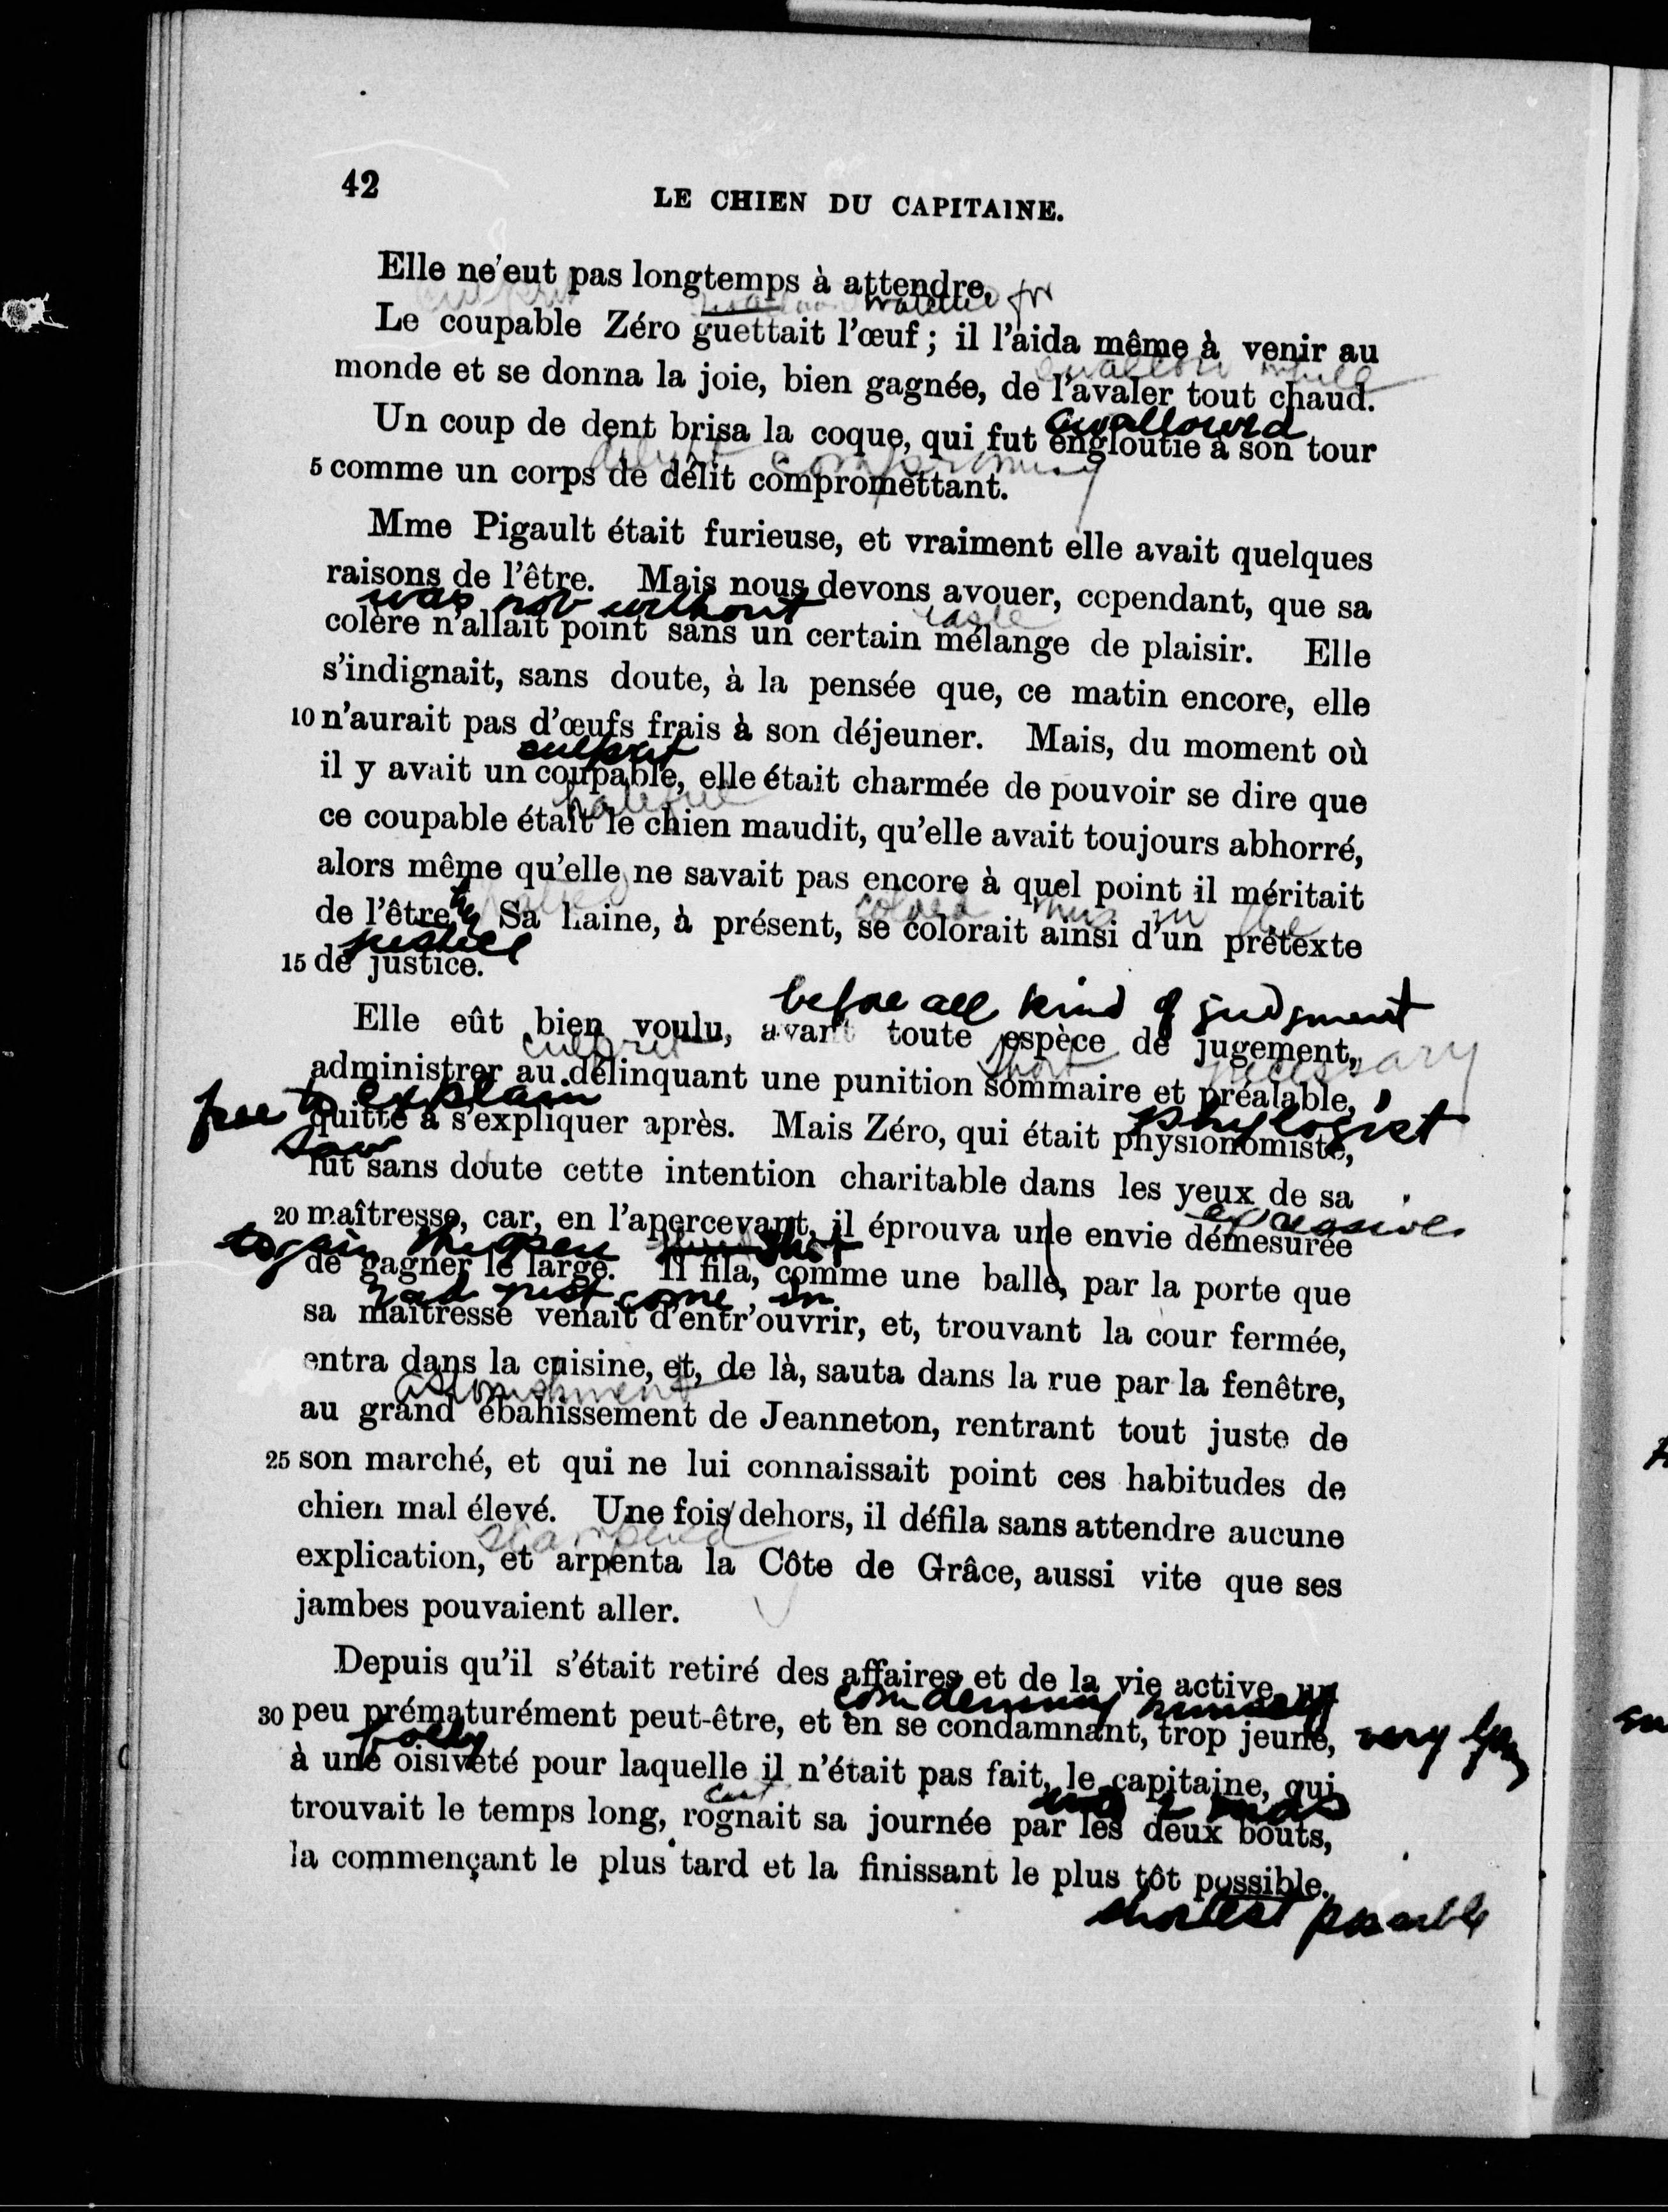 42
LE CHIEN DU CAPITAINE.
Elle ne eut pas longtemps à attendre.
culprit watched for
Le coupable Zéro guettait l'œuf ; il l'aida même à venir au
swallow while
monde et se donna la joie, bien gagnée, de l'avaler tout chaud.
swallowed
Un coup de dent brisa la coque, qui fut engloutie à son tour
5 comme un corps de délit compromettant.
Mme Pigault était furieuse, et vraiment elle avait quelques
raisons de l'être. Mais nous devons avouer, cependant, que sa
was not without
colère n'allait point sans un certain mélange de plaisir. Elle
s'indignait, sans doute, à la pensée que, ce matin encore, elle
10 n'aurait pas d'œufs frais à son déjeuner. Mais, du moment où
culprit
il y avait un coupable, elle était charmée de pouvoir se dire que
hateful
ce coupable était le chien maudit, qu'elle avait toujours abhorré,
alors même qu'elle ne savait pas encore à quel point il méritait
hatred colored thus in the
de l'être. Sa haine, à présent, se colorait ainsi d'un prétexte
justice
15 de justice.
before all kind of judgment
Elle eût bien voulu, avant toute espèce de jugement,
culprit short necessary
administrer au délinquant une punition sommaire et préalable,
free to explain phylogist
quitte à s'expliquer après. Mais Zéro, qui était physionomiste,
saw
lut sans doute cette intention charitable dans les yeux de sa
20 maîtresse, car, en l'apercevant, il éprouva une envie démesurée
to gain the open shot
de gagner le large. Il fila, comme une balle, par la porte que
had just come in
sa maîtresse venait d'entr'ouvrir, et, trouvant la cour fermée,
entra dans la cuisine, et, de là, sauta dans la rue par la fenêtre,
astonishment
au grand ébahissement de Jeanneton, rentrant tout juste de
25 son marché, et qui ne lui connaissait point ces habitudes de
chien mal élevé. Une fois dehors, il défila sans attendre aucune
explication, et arpenta la Côte de Grâce, aussi vite que ses
jambes pouvaient aller.
Depuis qu'il s'était retiré des affaires et de la vie active, un
condemning himself
30 peu prématurément peut-être, et en se condamnant, trop jeune, very
à une oisiveté pour laquelle il n'était pas fait, le capitaine, qui
cut
trouvait le temps long, rognait sa journée par les deux bouts,
la commençant le plus tard et la finissant le plus tôt possible.
shortest possible